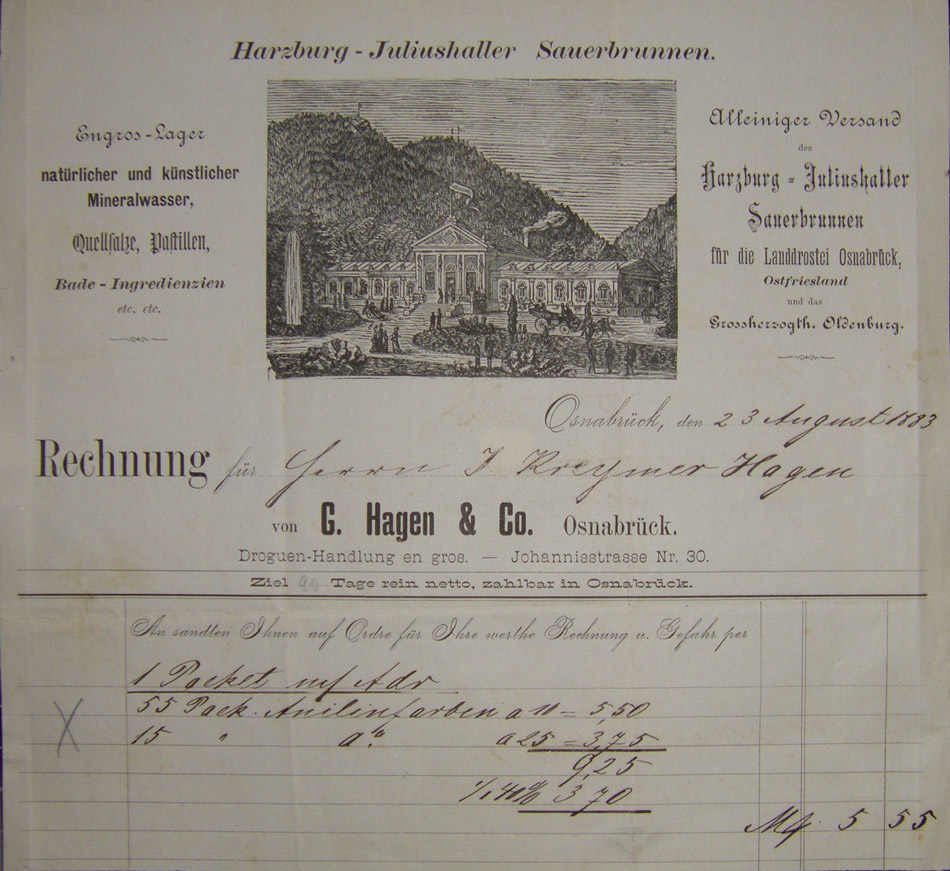 Harzburg - Juliushaller Sauerbrunnen.
Engros-Lager
natürlicher und künstlicher
Mineralwasser,
Quellsalze, Pastillen,
Bade - Ingredienzien
etc. etc.
Alleiniger Versand
des
Harzburg - Juliushaller
Sauerbrunnen
für die Landdrostei Osnabrück,
Ostfriesland
und das
Grossherzogth. Oldenburg.
Osnabrück, den 23 August 1883
Rechnung für Herrn J Kreymer Hagen
von G. Hagen & Co. Osnabrück.
Droguen-Handlung en gros. — Johannisstrasse Nr. 30.
Ziel Tage rein netto, zahlbar in Osnabrück.
An sandten Ihnen auf Ordre für Ihre werthe Rechnung u. Gefahr per
1 Packet Adr
55 Pack. Anilinfarben a 10 = 5,50
15 " do. a 25 = 3,75
9,25
40% 3 70
Mk. 5 55